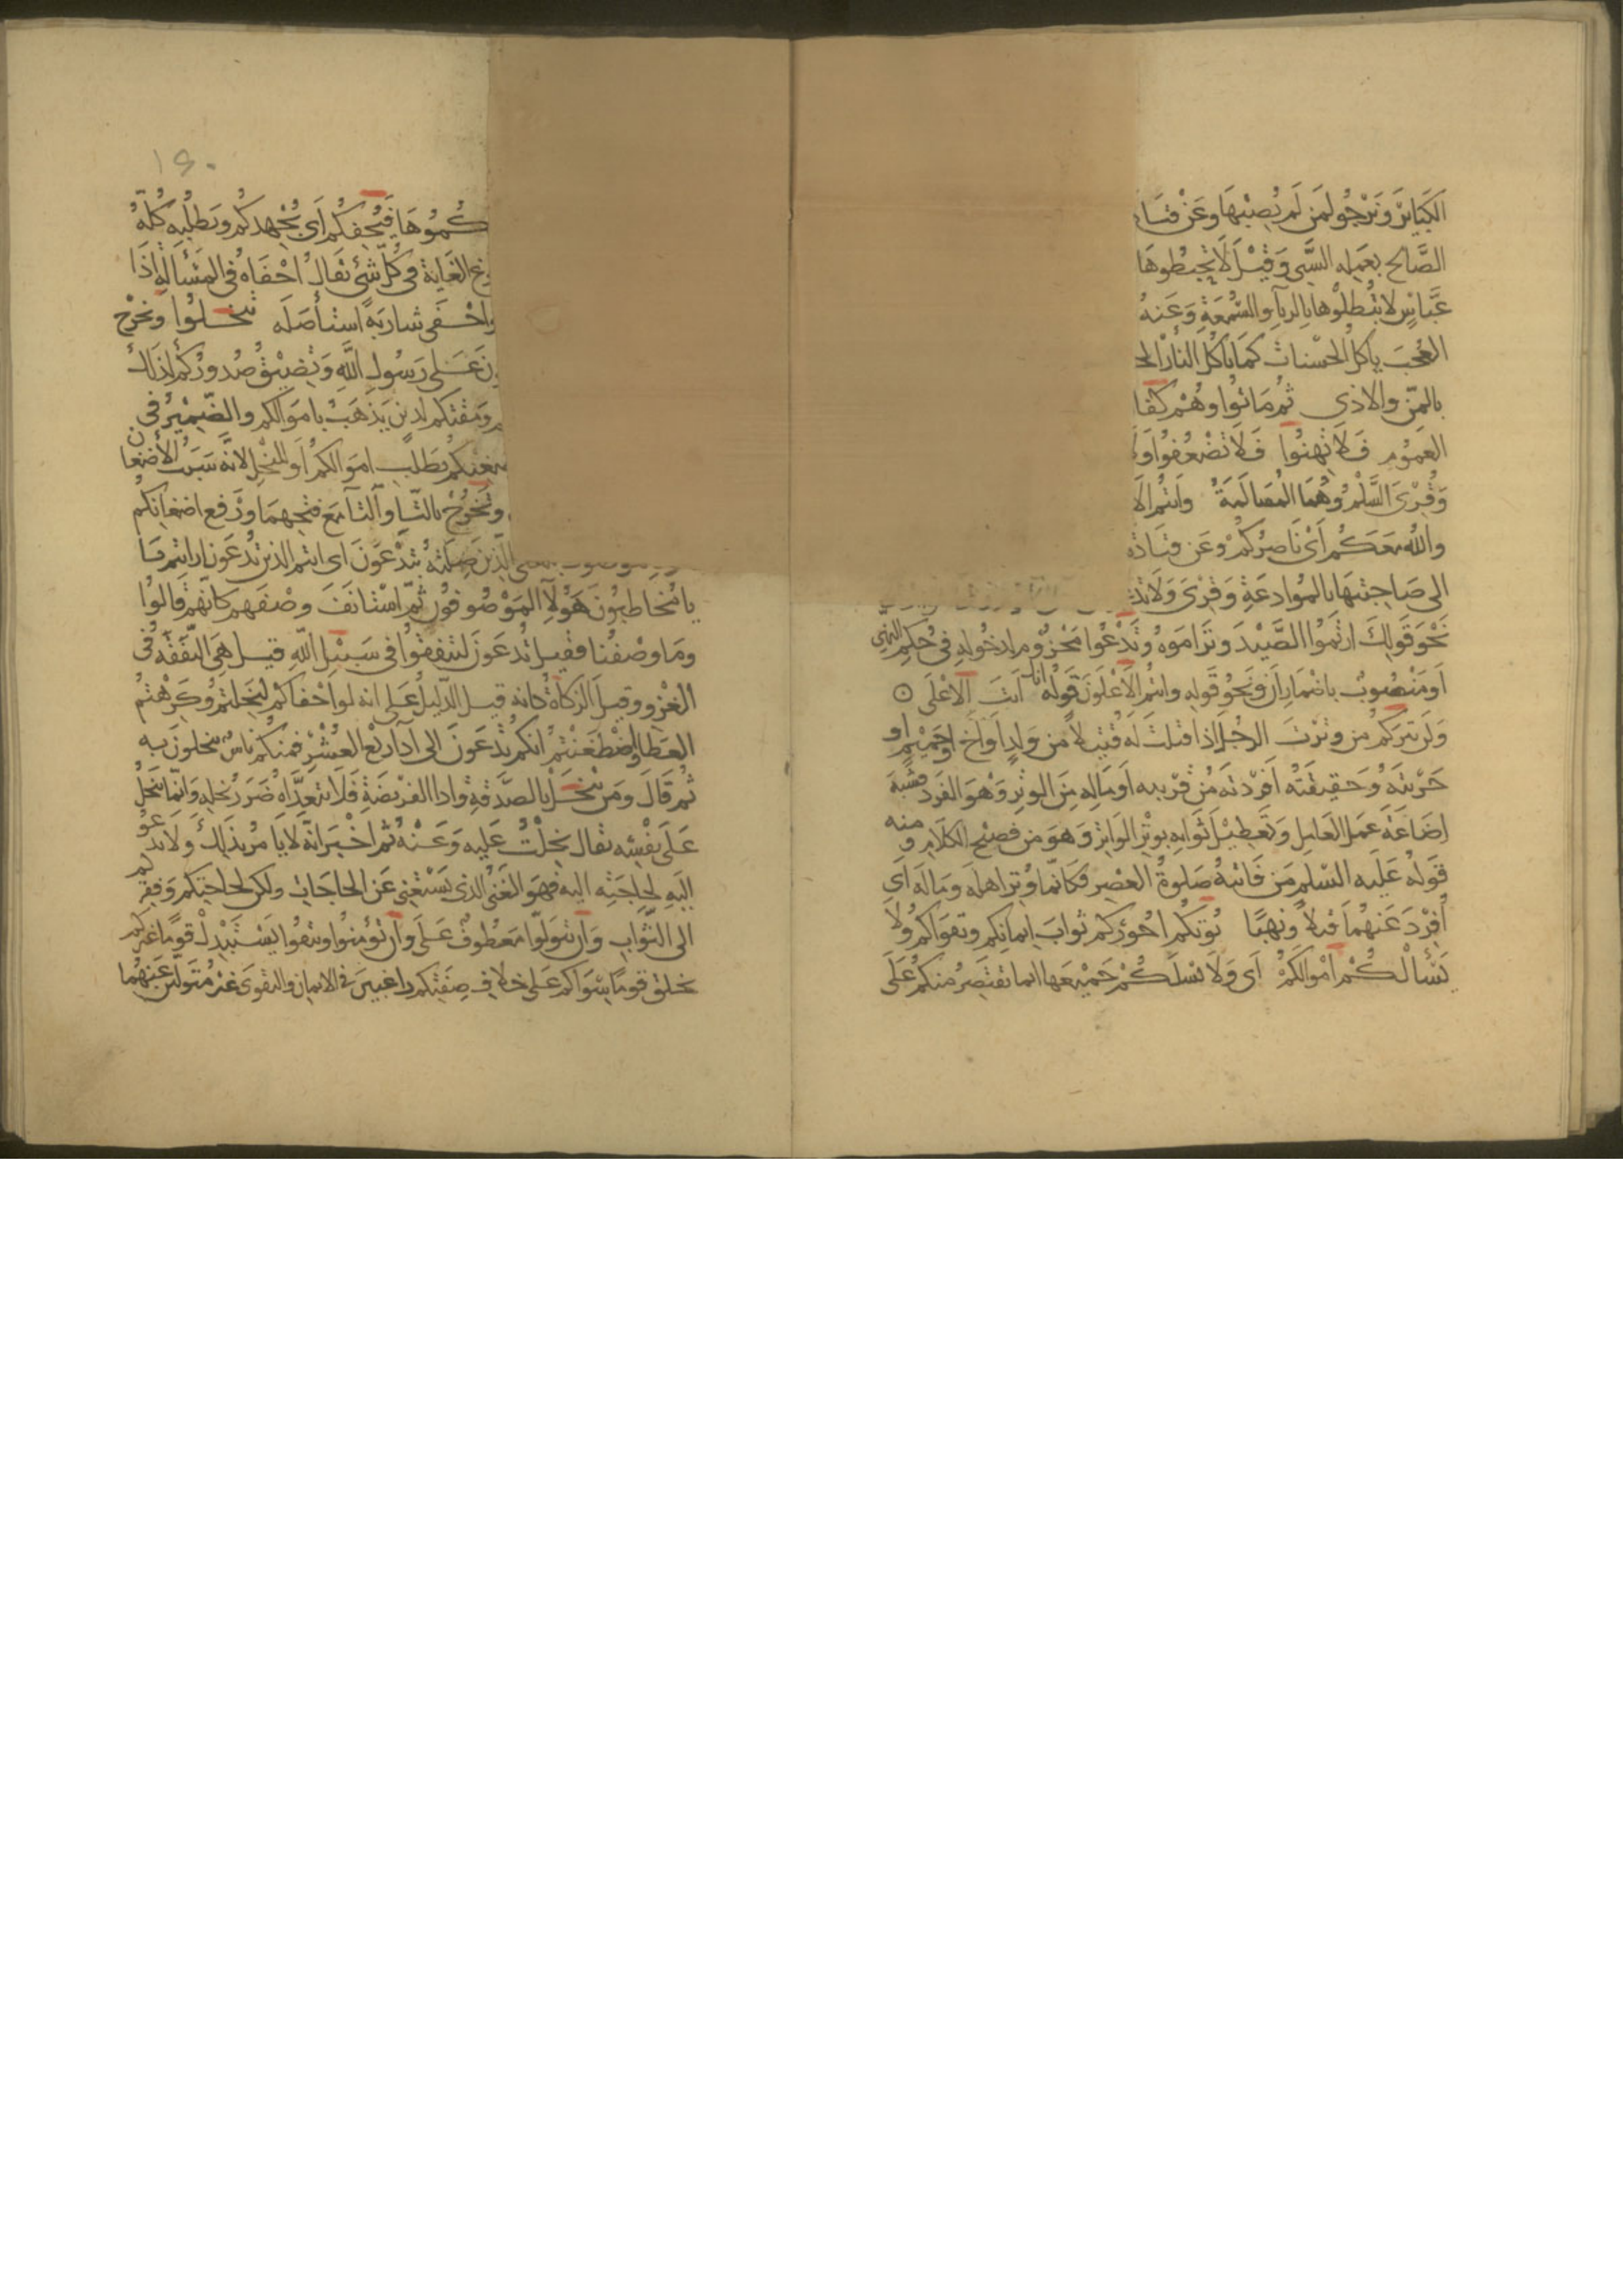 الكبَائرَ ونَرْجُو لمَن لَم يُصِبْهَا وعَنْ قتَادَ
الصَّالح بعَمله السَّيّ وَقيْلَ لَا تُحبطُوهَا
عَبَّاسٍ لَا تُبْطلُوها بالرياءِ والسُّمعَةِ وَعَنهُ
العُجبَ ياكل الحسَنات كمَا تاكُل النارُ الح
بالمنّ والاذى ثُمّ مَاتُوا وهُمْ كفا
العمُوم فَلَا تَهِنُوا فَلَا تَضْعُفُوا وَلَ
وَقُرِئَ السَّلْم وهُمَا المُسَالَمَةُ وانتُم الاَ
والله معَكُم أَىْ نَاصِرُكُمْ وعَن قتَادَة
الى صَاحِبَتهَا بالمُوادعَةِ وَقُرِئَ وَلَا تَدَّ
نَحْوَ قَولِكَ ارتَمَوُا الصَّيْدَ وتَرَامَوهُ وتَدْعُوا مَجْزُوم لدخُوله فى حُكم النهى
اَو مَنْصُوبٌ باضْمَار اَن ونَحْوُ قَوله وانتُم الاَعْلَونَ قَولهُ انك انتَ الاعْلَى ⊙
وَلَن يَتركُم من وتَرْتَ الرجُلَ إذا قتَلتَ لَهُ قَتيلاً من وَلَدٍ اَو اَخٍ او حَمِيْمٍ او
حَرَبْتَهُ وَحَقِيقَتُه اَفْرَدْتَه مُن قَريْبه اَو مَالِه مِنَ الوِتْر وَهوَ الفَرْد فشبّهَ
اِضَاعَة عَمَل العَامِل وتَعطِيْل ثَوَابه بوتْر الوَاتِر وَهوَ من فصيْح الكلَام و منه
قَولهُ عَلَيه السّلم مَن فَاتته صَلوةُ العَصْر فكانّما وُتِر اهلَه ومَاله اَى
اُفرْدَ عَنهُمَا قتلاً ونَهبًا يُوتكُم اجُورَكم ثَوابَ ايمانكم وتقوَاكم ولا
يَسْأَلْكُمْ اَمْوالَكُمْ اَى وَلَا يَسْلكُمْ جَمِيْعهَا انما يَقْتَصِرُ منكُم عَلَى
١٤٠
كُمُوهَا فيُحْفِكُم اَى يُجْهِدكُم ويَطلُبه كُلّهُ
وغ الغَايَة فى كلّ شَئ يقالُ احْفَاهُ فى المَسْألةِ اذَا
واحْفَى شَاربَهُ استأصَلَه تبخَلُوا ويُخْرِج
ن عَلى رَسُول الله وَتَضِيْقُ صُدورُكُم لذَلكَ
م ومَقتكم لدين يَذهَبُ باموَالكم والضّمِيْر فى
يضغنكم بطَلب اموَالكُم اَو للبُخْل لانّه سَبَبُ الاضغان
وتَخرُجْ بالتَّاءِ والْيَا مَعَ فتحِهمَا ورَفع اضغانكُم
الّذين صِلَتُه تُدْعَوْنَ اى انتم الذين تُدعَونَ او انتم يَا
يا مُخاطبُونَ هَؤُلاَءِ المَوصُوفُون ثمّ اسْتَانَفَ وصْفهُم كانّهم قَالُوا
ومَا وصْفُنا فقيل تُدعَونَ لتُنفِقُوا فى سَبيْل الله قيل هى النّفَقَة فى
الغزو وقيلَ الزكاةُ كانه قيل الدّليلُ عَلى انه لو احفاكُم لبَخِلتُم وكَرهتُم
العَطَا واضْطَغَنْتم انكُم تُدعَونَ الى آداء ربع العُشْر فمنكُم ناسٌ يبخلونَ به
ثُمّ قَالَ ومَن يبْخَلْ بالصّدَقةِ واداءِ الفريْضَةِ فلَا يَتعَدّاهُ ضَرَرُ بُخْلِه وَانّما يبخَلُ
عَلى نَفْسِه يقالُ بخلْتُ عَلَيه وعَنْهُ ثُم اخْبَرَ انهُ لَا يَامُر بذلكَ ولَا يَدعُو
اِلَيه لحاجَته اليه فَهوَ الغَنىُّ الذى يَسْتَغْنى عَن الحَاجَات ولكن لحاجتكم وفقركم
الى الثّواب وَاِن تَتوَلّوا مَعْطوفٌ عَلَى وَاِن تُؤْمنُوا وتتقوُا يَسْتَبْدِلْ قومًا غيركم
يخلق قومًا سِوَاكم عَلى خلَافِ صِفَتِكم راغِبينَ فى الايمان والتقوى غَيْر مُتوَلّين عَنهُمَا